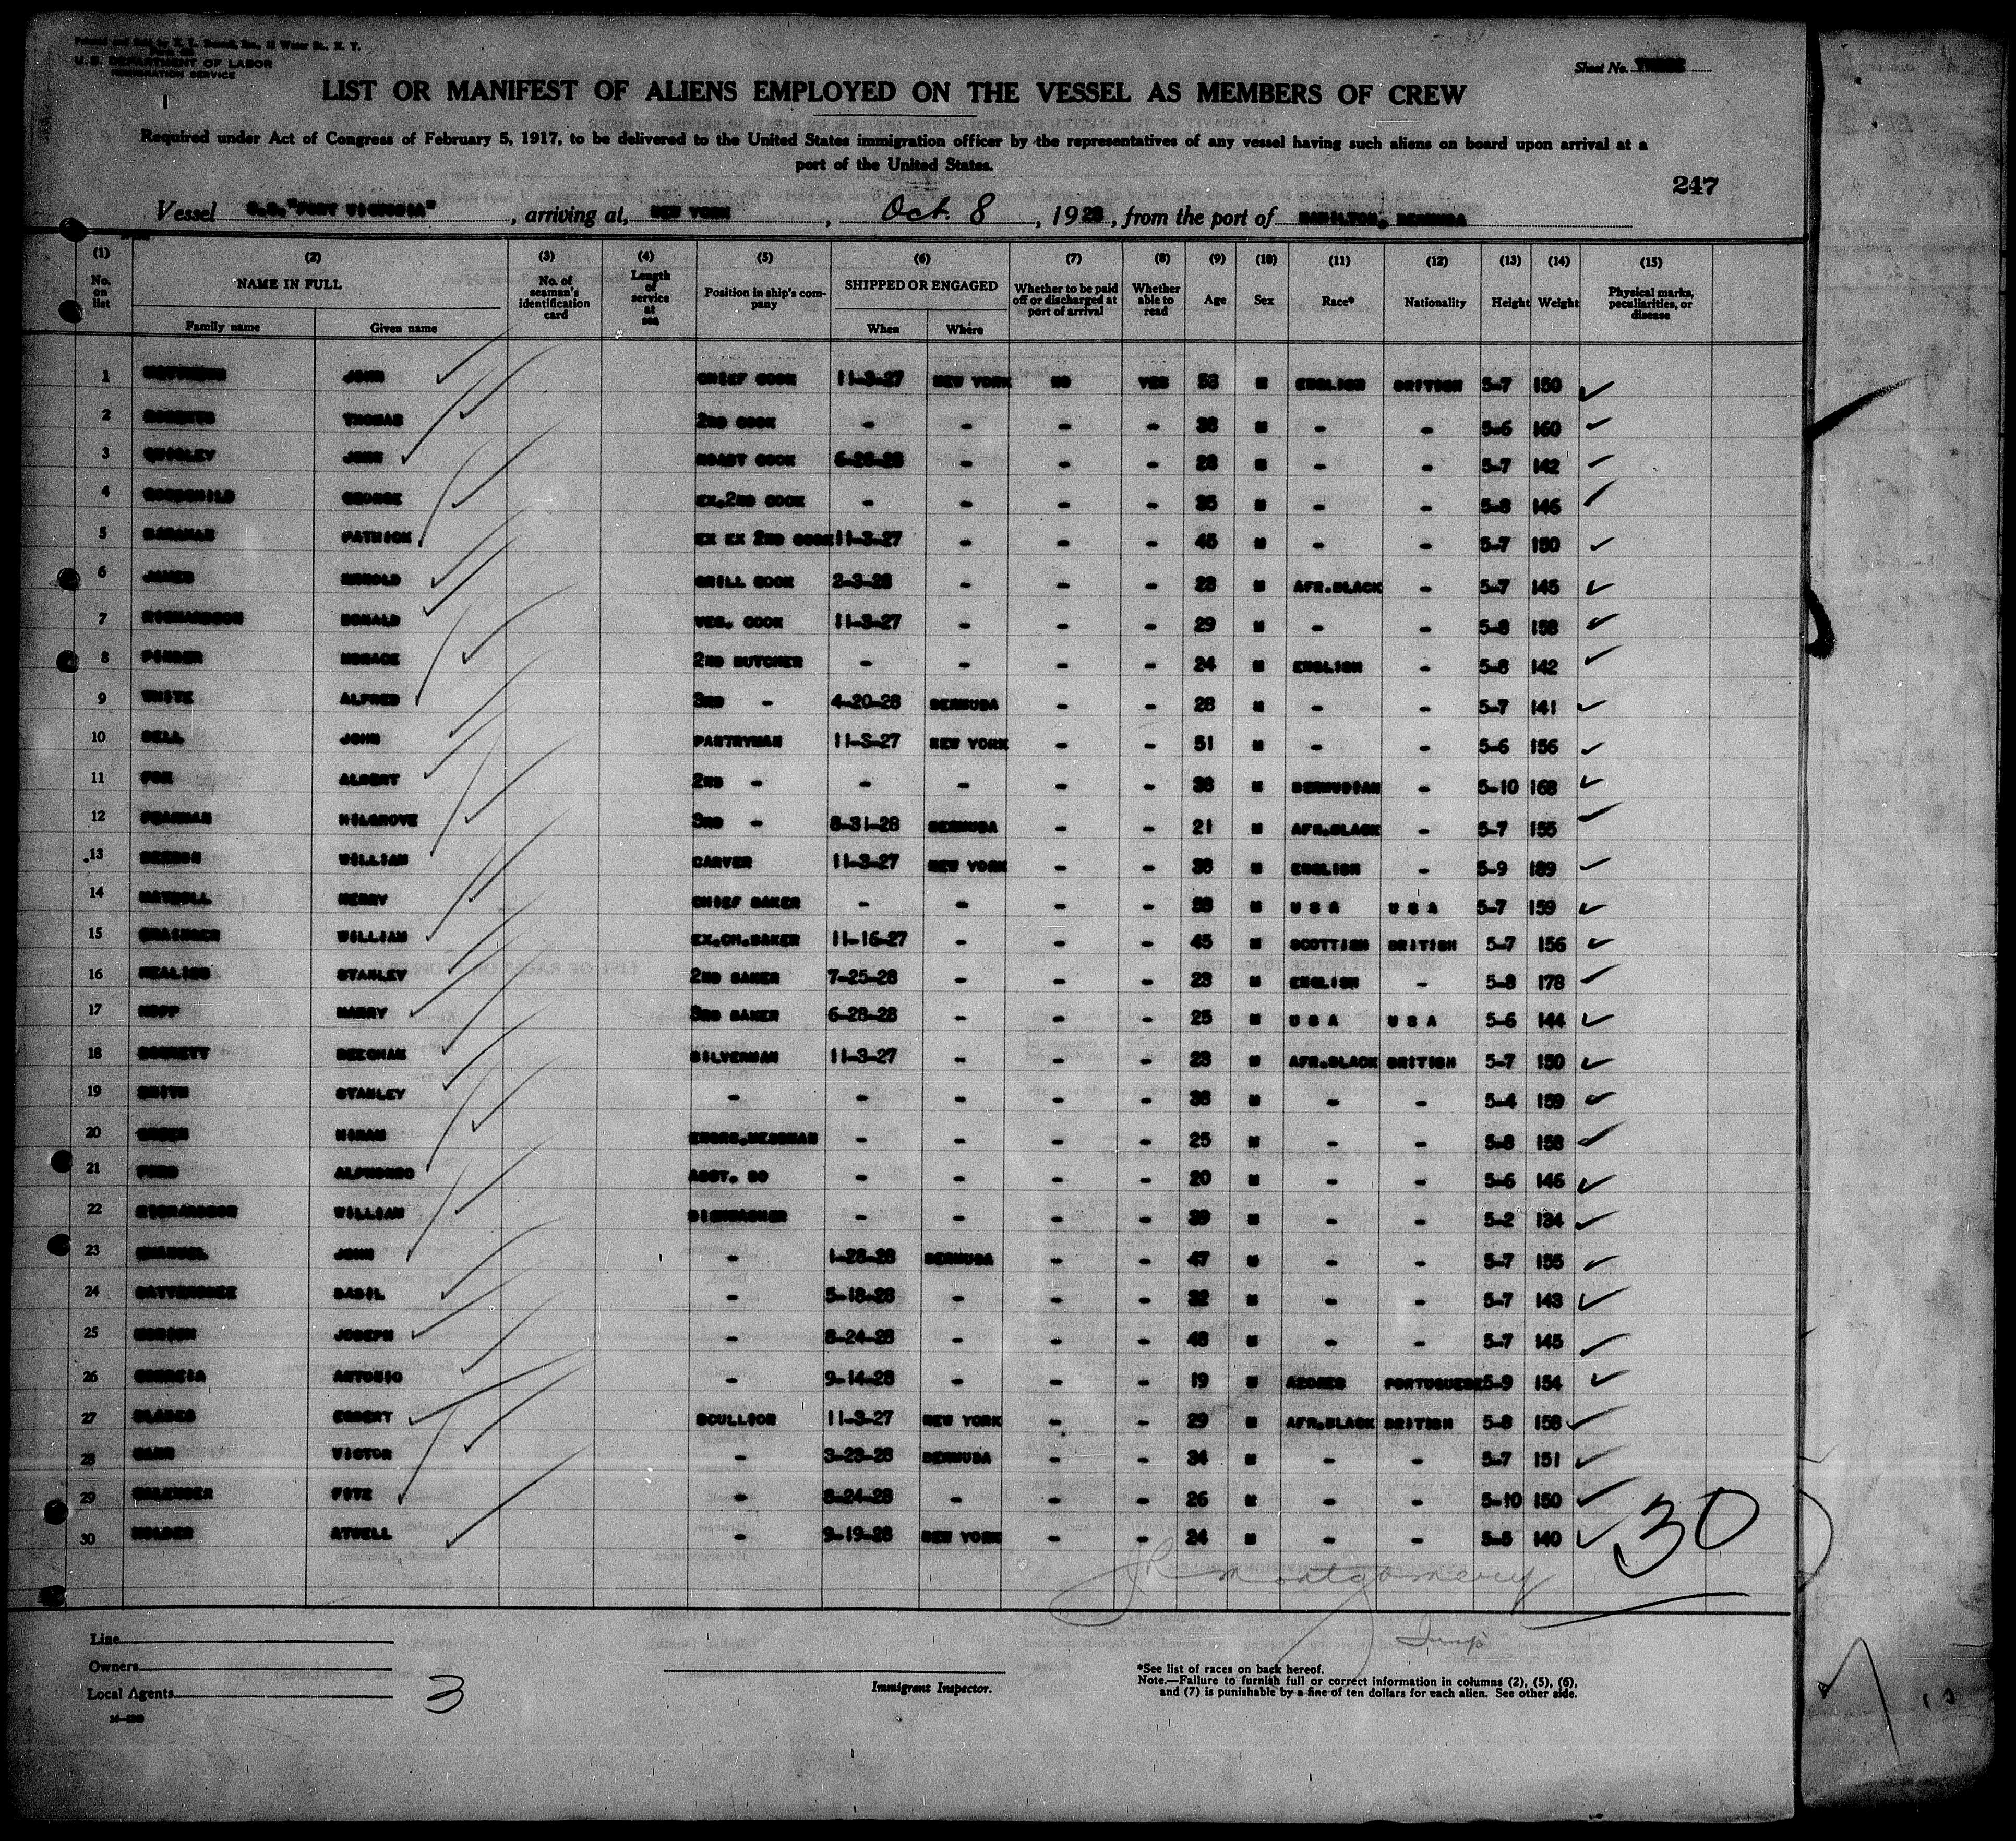 U.S. DEPARTMENT OF LABOR
IMMIGRATION SERVICE
Sheet No. THREE
LIST OR MANIFEST OF ALIENS EMPLOYED ON THE VESSEL AS MEMBERS OF CREW
Required under Act of Congress of February 5, 1917, to be delivered to the United States immigration officer by the representatives of any vessel having such aliens on board upon arrival at a
port of the United States.
247
Vessel S.S. "FORT VICTORIA", arriving at, NEW YORK, Oct. 8, 1928, from the port of HAMILTON, BERMUDA
(1) (2) (3) (4) (5) (6) (7) (8) (9) (10) (11) (12) (13) (14) (15)
No. on list NAME IN FULL No. of seaman's identification card Length of service at sea Position in ship's company SHIPPED OR ENGAGED Whether to be paid off or discharged at port of arrival Whether able to read Age Sex Race* Nationality Height Weight Physical marks, peculiarities, or disease
Family name Given name When Where
1 JOHN CHIEF COOK 11-3-27 NEW YORK NO YES 53 M ENGLISH BRITISH 5-7 150
2 ROBERTS THOMAS 2ND COOK - - - - M - - 5-6 160
3 QUIGLEY JOHN ROAST COOK 6-28-28 - - - 28 M - - 5-7 142
4 GOODCHILD GEORGE EX.2ND COOK - - - - 35 M - - 5-8 146
5 PATRICK EX EX 2ND COOK 11-3-27 - - - 45 M - - 5-7 150
6 JAMES ARNOLD GRILL COOK 2-3-28 - - - 23 M AFR.BLACK - 5-7 145
7 RICHARDSON DONALD VEG. COOK 11-3-27 - - - 29 M - - 5-8 158
8 HORACE 2ND BUTCHER - - - - 24 M ENGLISH - 5-8 142
9 WHITE ALFRED 3RD - 4-20-28 BERMUDA - - 28 M - - 5-7 141
10 BELL JOHN PASTRYMAN 11-3-27 NEW YORK - - 51 M - - 5-6 156
11 FOX ALBERT 2ND - - - - - 38 M BERMUDIAN - 5-10 168
12 PEARMAN HILGROVE 3RD - 8-31-28 BERMUDA - - 21 M AFR.BLACK - 5-7 155
13 WILLIAM CARVER 11-3-27 NEW YORK - - 38 M ENGLISH - 5-9 189
14 HENRY CHIEF BAKER - - - - M U S A U S A 5-7 159
15 GRAINGER WILLIAM EX.CH.BAKER 11-16-27 - - - 45 M SCOTTISH BRITISH 5-7 156
16 STANLEY 2ND BAKER 7-25-28 - - - 23 M ENGLISH - 5-8 178
17 HOPP HARRY 3RD BAKER 6-28-28 - - - 25 M U S A U S A 5-6 144
18 BEECHAM SILVERMAN 11-3-27 - - - 23 M AFR.BLACK BRITISH 5-7 150
19 SMITH STANLEY - - - - - 38 M - - 5-4 159
20 GREEN HIRAM ENGRS.MESSMAN - - - - 25 M - - 5-8 158
21 FORD ALPHONSO ASST. DO - - - - 20 M - - 5-6 146
22 RICHARDSON WILLIAM DISHWASHER - - - - 39 M - - 5-2 134
23 JOHN - 1-28-28 BERMUDA - - 47 M - - 5-7 155
24 BATTERSBEE BASIL - 5-18-28 - - - 32 M - - 5-7 143
25 JOSEPH - 8-24-28 - - - 48 M - - 5-7 145
26 CORREIA ANTONIO - 9-14-28 - - - 19 M AZORES PORTUGUESE 5-9 154
27 BLADES EGBERT SCULLION 11-3-27 NEW YORK - - 29 M AFR.BLACK BRITISH 5-8 158
28 VICTOR - 3-23-28 BERMUDA - - 34 M - - 5-7 151
29 CALENDER FITZ - 8-24-28 - - - 26 M - - 5-10 150
30 HOLDER ATWELL - 9-19-28 NEW YORK - - 24 M - - 140
30
JR Montgomery
Insp.
Line
Owners
Local Agents
3
Immigrant Inspector.
*See list of races on back hereof.
Note.—Failure to furnish full or correct information in columns (2), (5), (6),
and (7) is punishable by a fine of ten dollars for each alien. See other side.